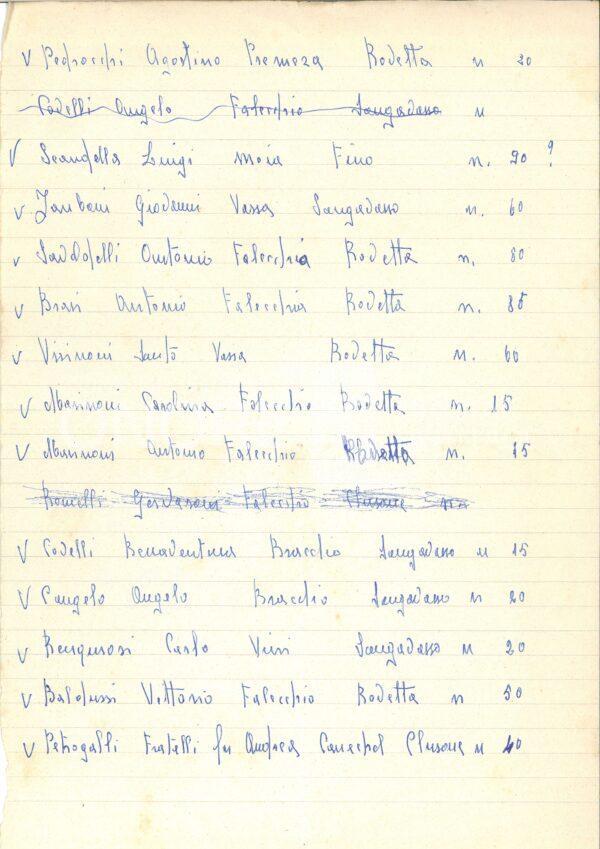 v Pedrocchi Agostino Premeza Rodetta n 20
Codelli Angelo Falecchio Songadano n
v Scandella Luigi moia Fino n. 90 ?
v Zamboni Giovanni Vassa Songavano n. 60
v Savoldelli Antonio Falecchia Rodetta n. 80
v Brasi Antonio Falecchia Rodetta n. 85
v Visinoni Santo Vassa Rodetta n. 60
v Marinoni Carolina Falecchio Rodetta n. 15
v Marinoni Antonio Falecchio Rodetta n. 15
Romelli Falecchio Clusone
v Codelli Benaventura Bracchio Songavano n 15
v Cangelo Angelo Bracchio Songavano n 20
v Carlo Songavano n 20
v Baldussi Vittorio Falecchio Rodetta n 50
v Petrogalli Fratelli fu Andrea Clusone n 40